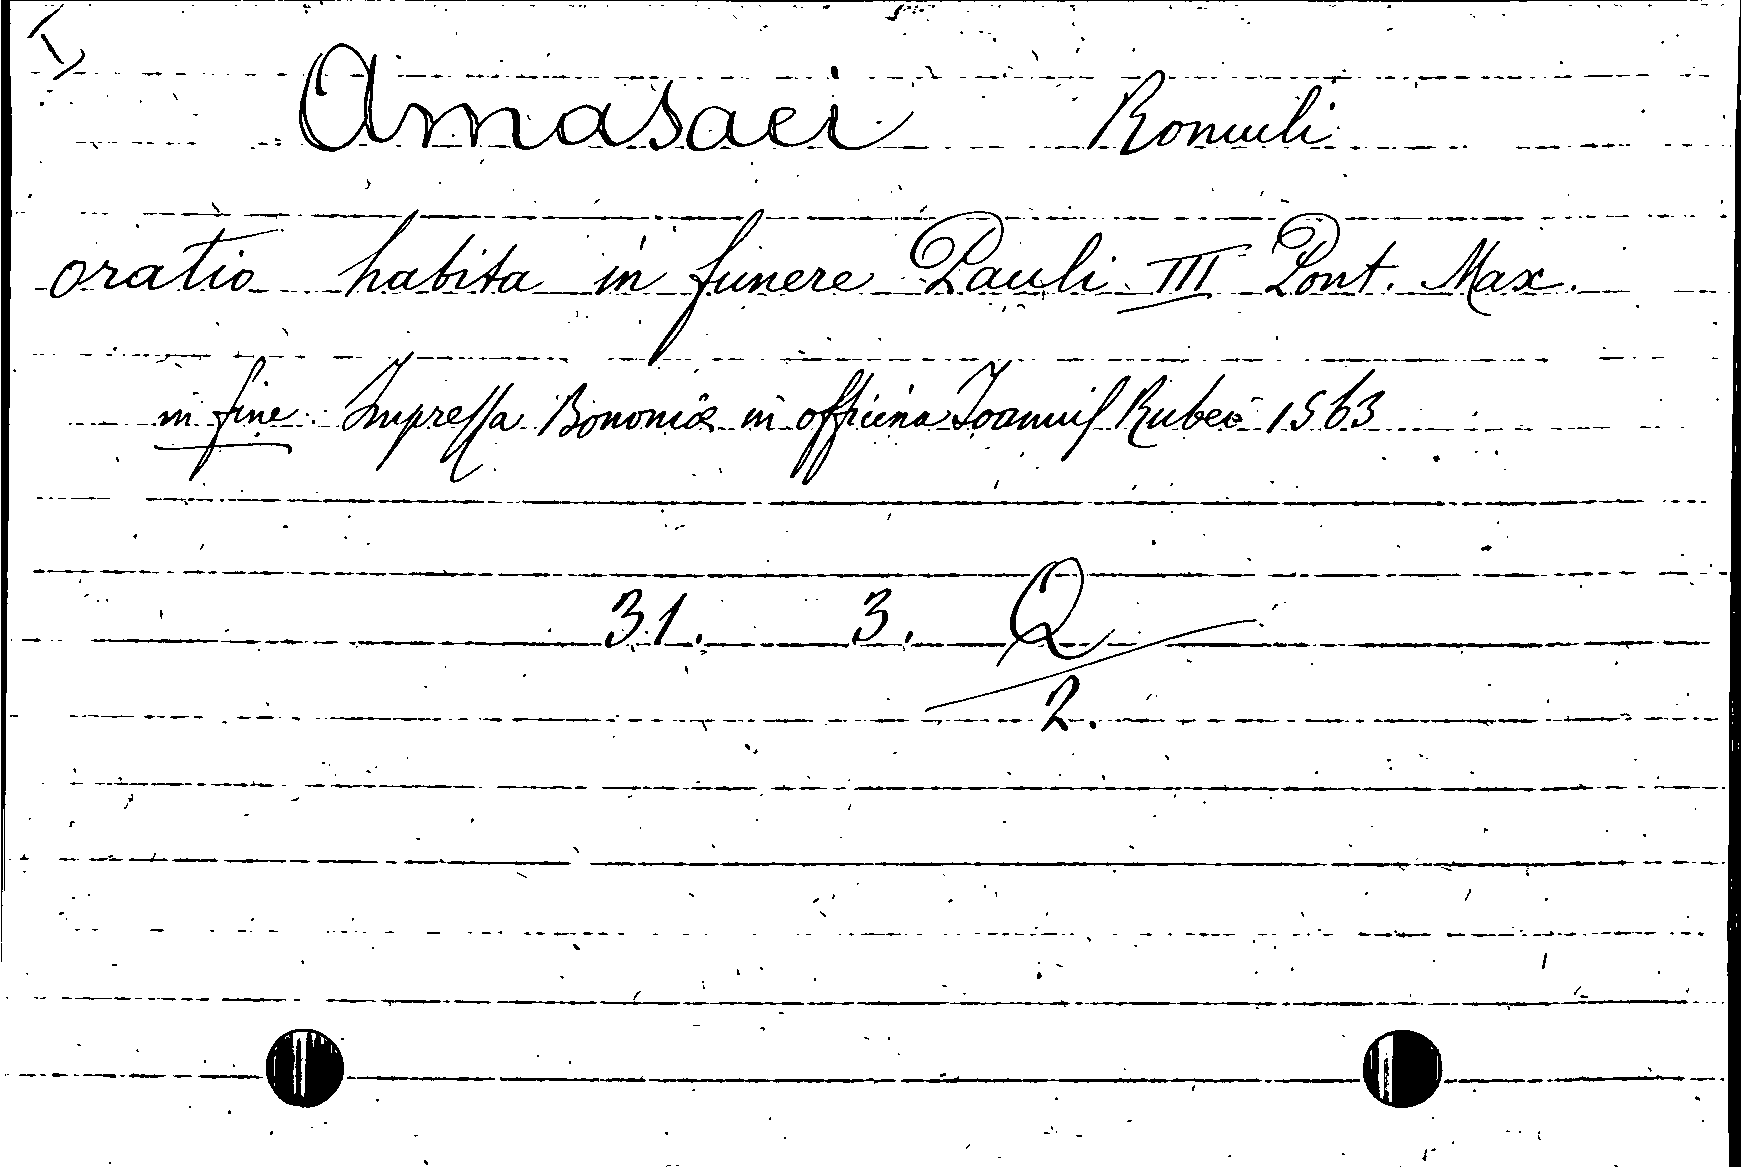 I
Amasaei Romuli
oratio habita in funere Pauli III Pont. Max.
in fine: Impreſsa Bononiæ in officina Joannis Rubei 1563
31. 3. Q
2.